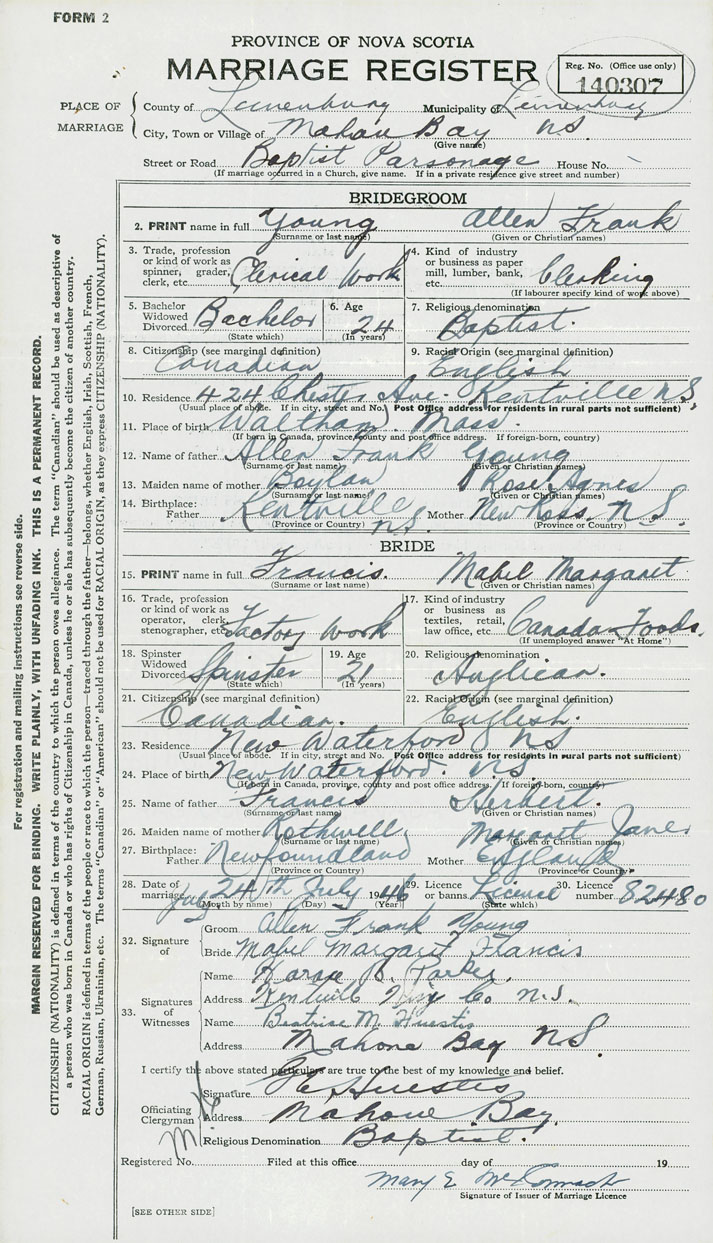 FORM 2
PROVINCE OF NOVA SCOTIA
MARRIAGE REGISTER
Reg. No. (Office use only)
140307
PLACE OF MARRIAGE
County of Lunenburg Municipality of Lunenburg
City, Town or Village of Mahone Bay NS.
(Give name)
Street or Road Baptist Parsonage House No.
(If marriage occurred in a Church, give name. If in a private residence give street and number)
BRIDEGROOM
2. PRINT name in full Young Allen Frank
(Surname or last name) (Given or Christian names)
3. Trade, profession or kind of work as spinner, grader, clerk, etc. Clerical Work
4. Kind of industry or business as paper mill, lumber, bank, etc. Clerking
(If labourer specify kind of work above)
5. Bachelor Widowed Divorced Bachelor
(State which)
6. Age 24
(In years)
7. Religious denomination
Baptist.
8. Citizenship (see marginal definition)
Canadian
9. Racial Origin (see marginal definition)
English
10. Residence 424 Chester Ave. Kentville N.S.
(Usual place of abode. If in city, street and No.) Post Office address for residents in rural parts not sufficient)
11. Place of birth Waltham. Mass.
(If born in Canada, province, county and post office address. If foreign-born, country)
12. Name of father Allen Frank Young
(Surname or last name) (Given or Christian names)
13. Maiden name of mother Boylan Rose Agnes
(Surname or last name) (Given or Christian names)
14. Birthplace: Father Kentville N.S. Mother New Ross, N.S.
(Province or Country) (Province or Country)
BRIDE
15. PRINT name in full Francis. Mabel Margaret
(Surname or last name) (Given or Christian names)
16. Trade, profession or kind of work as operator, clerk, stenographer, etc. Factory Work
17. Kind of industry or business as textiles, retail, law office, etc. Canada Foods.
(If unemployed answer "At Home")
18. Spinster Widowed Divorced Spinster
(State which)
19. Age 21
(In years)
20. Religious denomination
Anglican.
21. Citizenship (see marginal definition)
Canadian.
22. Racial Origin (see marginal definition)
English.
23. Residence New Waterford NS
(Usual place of abode. If in city, street and No. Post Office address for residents in rural parts not sufficient)
24. Place of birth New Waterford. N.S.
(If born in Canada, province, county and post office address. If foreign-born, country)
25. Name of father Francis Herbert.
(Surname or last name) (Given or Christian names)
26. Maiden name of mother Rothwell Margaret Jane
(Surname or last name) (Given or Christian names)
27. Birthplace: Father Newfoundland Mother England
(Province or Country) (Province or Country)
28. Date of marriage July 24th July 1946
(Month by name) (Day) (Year)
29. Licence or banns License
(State which)
30. Licence number 82480
32. Signature of
Groom Allen Frank Young
Bride Mabel Margaret Francis
33. Signatures of Witnesses
Name Parker.
Address Kentville Co N.S.
Name Beatrise M. Huestis
Address Mahone Bay NS.
I certify the above stated particulars are true to the best of my knowledge and belief.
Officiating Clergyman
Signature Huestis
Address Mahone Bay.
Religious Denomination Baptist.
Registered No. Filed at this office day of 19
Mary E McCormack
Signature of Issuer of Marriage Licence
[SEE OTHER SIDE]
For registration and mailing instructions see reverse side.
MARGIN RESERVED FOR BINDING. WRITE PLAINLY, WITH UNFADING INK. THIS IS A PERMANENT RECORD.
CITIZENSHIP (NATIONALITY) is defined in terms of the country to which the person owes allegiance. The term "Canadian" should be used as descriptive of
a person who was born in Canada or who has rights of Citizenship in Canada, unless he or she has subsequently become the citizen of another country.
RACIAL ORIGIN is defined in terms of the people or race to which the person—traced through the father—belongs, whether English, Irish, Scottish, French,
German, Russian, Ukrainian, etc. The terms "Canadian" or "American" should not be used for RACIAL ORIGIN, as they express CITIZENSHIP (NATIONALITY).